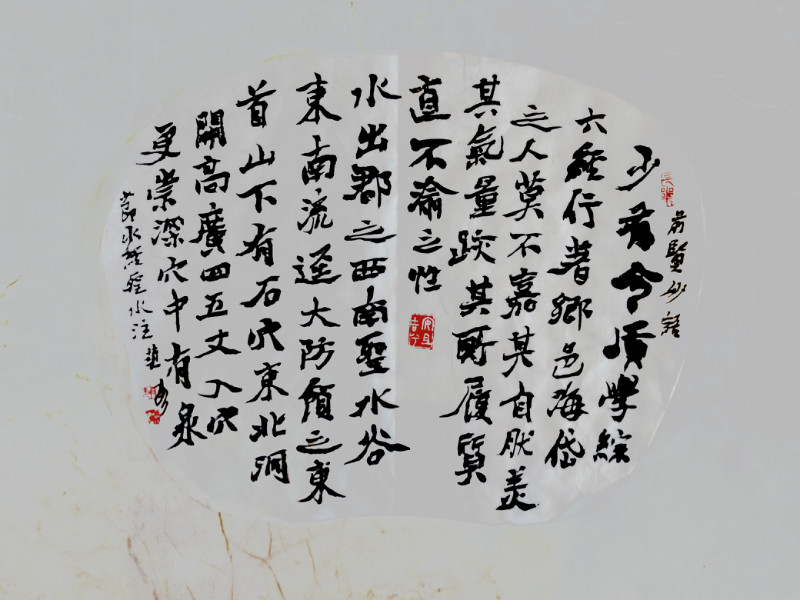 前賢妙語
少有令質學綜
六經行著鄉邑海岱
之人莫不嘉其自肰美
其氣量跂其所履質
直不渝之性
水出郡之西南聖水谷
東南流逕大防領之東
首山下有石穴東北洞
開高廣四五丈入穴
更崇深穴中有泉
節水經聖水注